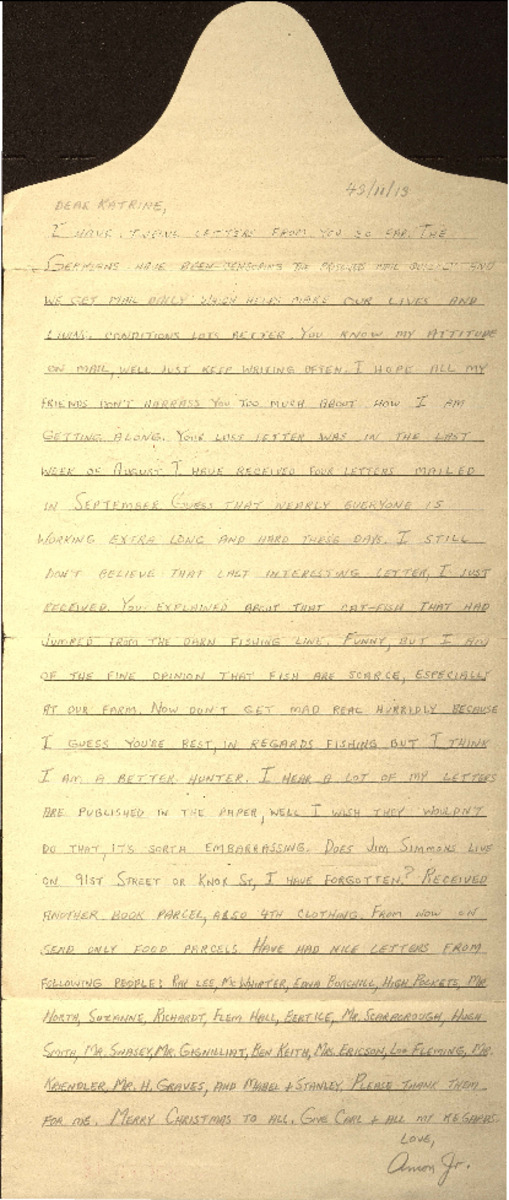 43/11/13
DEAR KATRINE,
I HAVE TWELVE LETTERS FROM YOU SO FAR. THE
GERMANS HAVE BEEN CENSORING THE PRISONER MAIL QUICKLY AND
WE GET MAIL DAILY WHICH HELPS MAKE OUR LIVES AND
LIVING CONDITIONS LOTS BETTER. YOU KNOW MY ATTITUDE
ON MAIL, WELL JUST KEEP WRITING OFTEN. I HOPE ALL MY
FRIENDS DON'T HARRASS YOU TOO MUCH ABOUT HOW I AM
GETTING ALONG. YOUR LAST LETTER WAS IN THE LAST
WEEK OF AUGUST. I HAVE RECEIVED FOUR LETTERS MAILED
IN SEPTEMBER. GUESS THAT NEARLY EVERYONE IS
WORKING EXTRA LONG AND HARD THESE DAYS. I STILL
DON'T BELIEVE THAT LAST INTERESTING LETTER, I JUST
RECEIVED. YOU EXPLAINED ABOUT THAT CAT-FISH THAT HAD
JUMPED FROM THE DARN FISHING LINE. FUNNY, BUT I AM
OF THE FINE OPINION THAT FISH ARE SCARCE, ESPECIALLY
AT OUR FARM. NOW DON'T GET MAD REAL HURRIDLY BECAUSE
I GUESS YOU'RE BEST, IN REGARDS FISHING BUT I THINK
I AM A BETTER HUNTER. I HEAR A LOT OF MY LETTERS
ARE PUBLISHED IN THE PAPER, WELL I WISH THEY WOULDN'T
DO THAT, IT'S SORTA EMBARRASSING. DOES JIM SIMMONS LIVE
ON 91ST STREET OR KNOX ST, I HAVE FORGOTTEN? RECEIVED
ANOTHER BOOK PARCEL, ALSO 4TH CLOTHING. FROM NOW ON
SEND ONLY FOOD PARCELS. HAVE HAD NICE LETTERS FROM
FOLLOWING PEOPLE: RAY LEE, McWHIRTER, EDNA BORCHILL, HIGH POCKETS, MR.
NORTH, SUZANNE, RICHARDT, FLEM HALL, BERTICE, MR. SCARBOROUGH, HUGH
SMITH, MR. SWASEY, MR. GIGNILLIAT, BEN KEITH, MRS. ERICSON, LOU FLEMING, MR.
KRENDLER, MR. H. GRAVES, AND MABEL + STANLEY. PLEASE THANK THEM
FOR ME. MERRY CHRISTMAS TO ALL. GIVE CARL + ALL MY REGARDS.
LOVE,
Amon Jr.